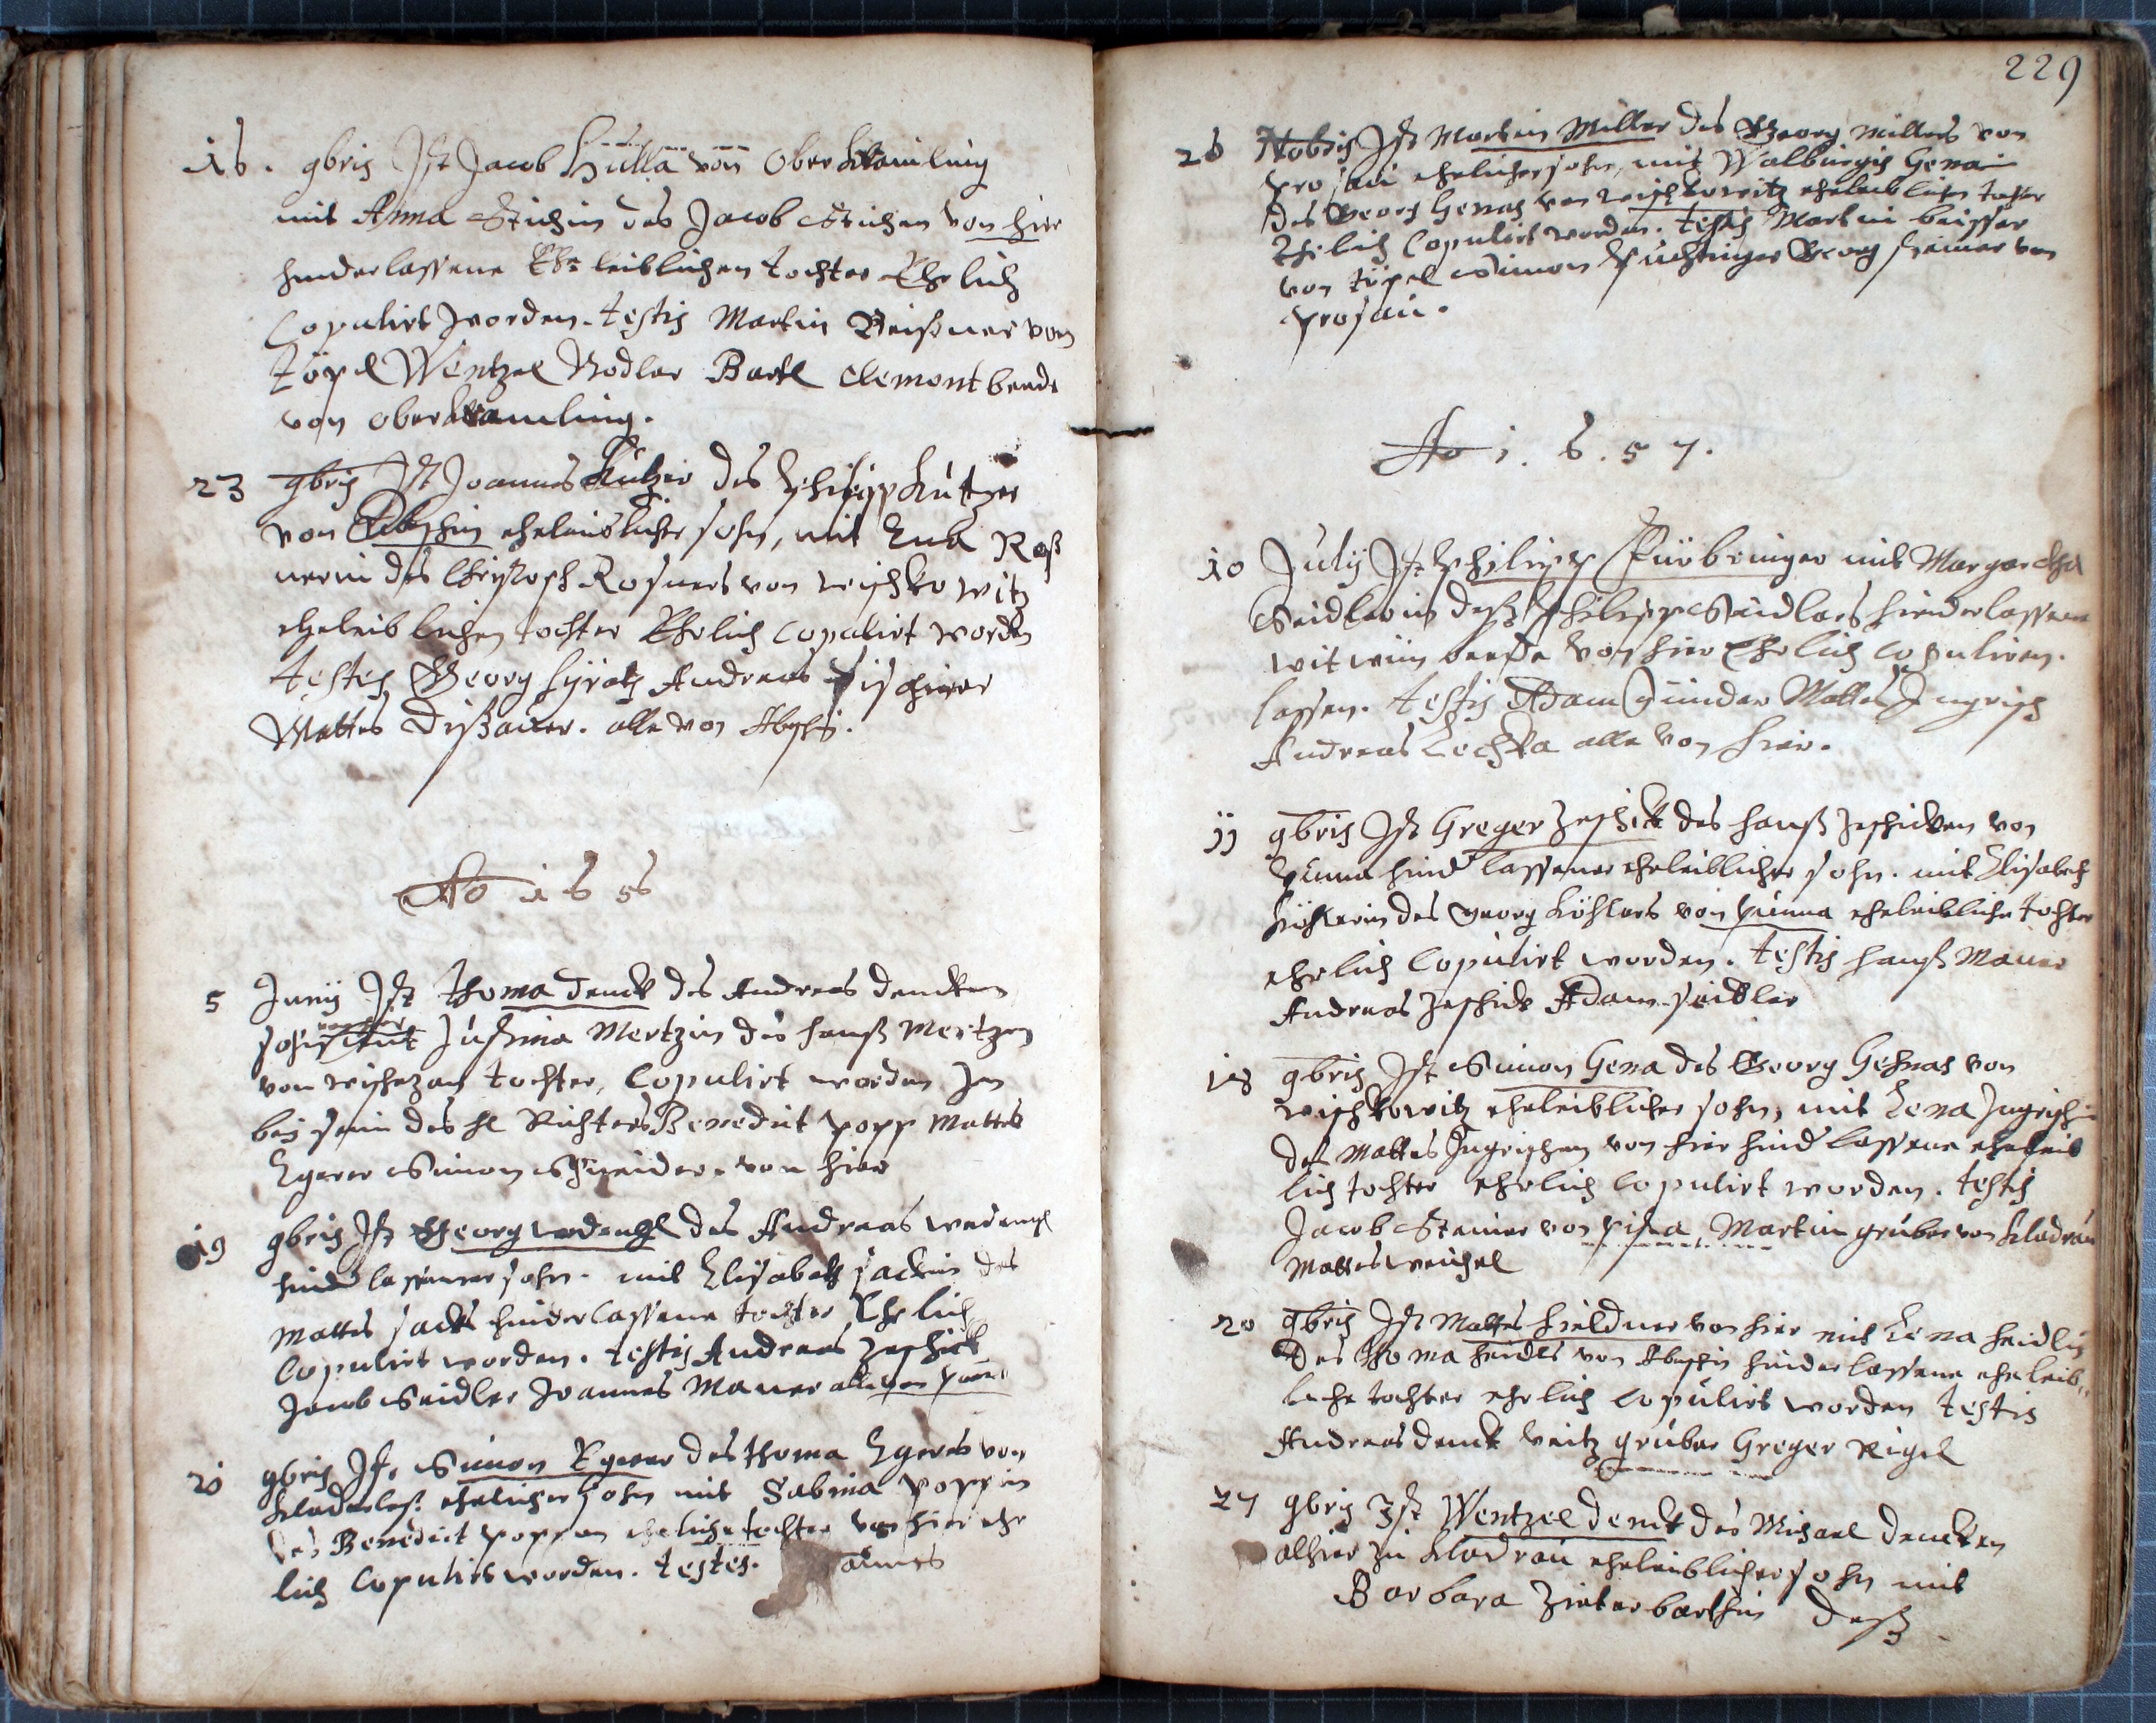 16. 9bris Ist Jacob Hulla von Ober kramling
mit Anna Stichin des Jacob Stichen von hier
hinderlassene Ehe leiblichen tochter Ehrlich
Copulirt worden. testis Martin Beißner von
töpel Wentzel Nodler Bartl Clement beede
von ober kramling.
23 9bris Ist Joannes Kutzer des Philipp Kutzer
von eheleiblicher sohn, mit Eva Roß
nerin des Christoph Rosners von wischkowitz
eheleiblichen tochter Ehrlich Copulirt worden
testes Georg Andreas
Mattes Dißauer. alle von
Ao 1656
5 Junij Ist Thoma Denck des Andreas dencken
sohn mit Justina Mertzin des hanß Mertzen
von tochter, Copulirt worden Jn
bey sein des H Richters Benedict popp Mattes
Egerer Simon Schneider. von hier
19 9bris Ist Georg des Andreas
hind lassener sohn. mit Elisabeth sackin des
Mattes sacks hinderlassene tochter Ehrlich
Copulirt worden. testis Andreas Zeschick
Jacob Seidler Joannes Maner alle von
21 9bris Ist Simon Egerer des thoma Egerers von
ehelicher sohn mit Sabina poppin
des Benedict poppen eheliche tochter von hier ehr
lich Copulirt worden. testes.
229
26 9obris Ist Martin Miller des Georg Millers von
prosau ehelicher sohn, mit Walburgis Gena
des Georg Genas von wischkowitz eheleiblichen tochter
Ehrlich Copulirt worden. testis Martin beisser
von töpel Simon Georg steiner von
prosau.
Ao 1.6.57.
10 Julij Ist Philipp Fürbringer mit Margaretha
Seidlerin deß Philipp Seidlers hinderlassene
witwin beede von hier Ehrlich Copuliren
lassen. testis Adam Günder Mattes Ingrisch
Andreas Lechka alle von hier.
11 9bris Ist Greger Zeschick des hanß Zeschicken von
punna hind lassener eheleiblicher sohn. mit Elisabeth
Köhlerin des georg Köhlers von punna eheleibliche tochter
ehrlich Copulirt worden. testis hanß Maner
Andreas Zeschick Adam seidler
18 9bris Ist Simon Gena des Georg Gehnas von
wischkowitz eheleiblicher sohn, mit Lena Ingrischin
des Mattes Ingrischen von hier hind lassene eheleib
lich tochter ehrlich Copulirt worden. testis
Jacob Steiner von Martin gruber von Kladrau
Mattes weichel
20 9bris Ist Mattes hieldner von hier mit Lena heidlin
des Thoma heidls von hinderlassene eheleib
liche tochter ehrlich Copulirt worden testis
Andreas denck Veitz gruber Greger Rigel
27 9bris Ist Wentzel Denck des Michael dencken
alhier zu Kladrau eheleiblicher sohn mit
Barbara Zieterbarthin deß